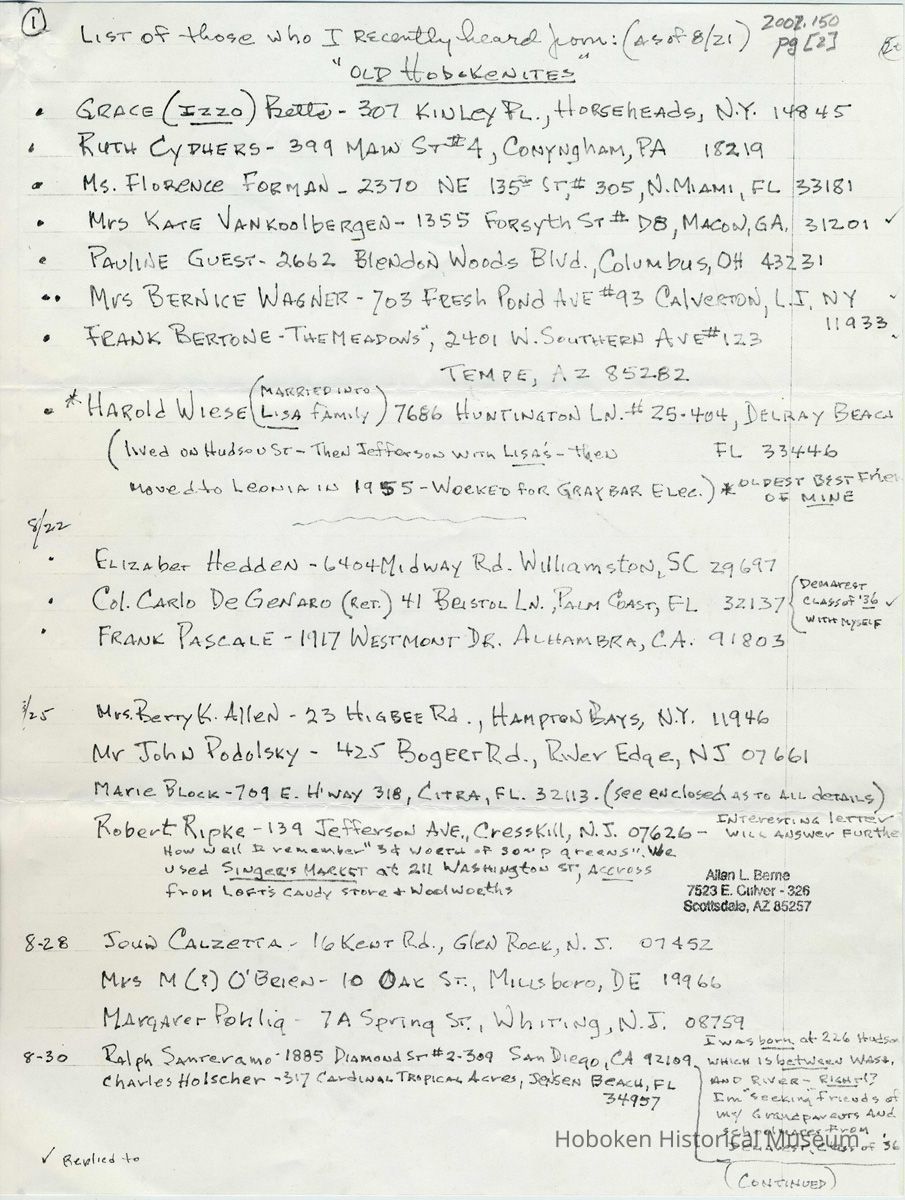 1
LIST OF those who I RECENTLY heard from: (AS OF 8/21)
2007.150
pg [2]
"OLD HOBOKENITES"
• GRACE (IZZO) Betts - 307 KINLEY PL., HORSEHEADS, N.Y. 14845
• RUTH CYPHERS - 399 MAIN ST #4, CONYNGHAM, PA 18219
• Ms. FLORENCE FORMAN - 2370 NE 135th ST, # 305, N. MIAMI, FL 33181
• MRS KATE VANKOOLBERGEN - 1355 FORSYTH ST # D8, MACON, GA. 31201 ✓
• PAULINE GUEST - 2662 BLENDON WOODS BLVD., COLUMBUS, OH 43231
•• MRS BERNICE WAGNER - 703 FRESH POND AVE #93 CALVERTON, L.I. NY
11933
• FRANK BERTONE - THE MEADOWS", 2401 W. SOUTHERN AVE #123
TEMPE, AZ 85282
• * HAROLD WIESE (MARRIED INTO LISA family) 7686 HUNTINGTON LN. # 25-404, DELRAY BEACH
(lived on Hudson St - Then Jefferson with LISA's - then FL 33446
moved to LEONIA IN 1955 - WORKED FOR GRAYBAR ELEC.) * OLDEST BEST Frien
OF MINE
8/22
• ELIZABET HEDDEN - 6404 Midway Rd. Williamston, SC 29697
• COL. CARLO DE GENARO (RET.) 41 BRISTOL LN., PALM COAST, FL 32137 { DEMAREST
CLASS OF '36 ✓
WITH MYSELF
• FRANK PASCALE - 1917 WESTMONT DR. ALHAMBRA, CA. 91803
/25 Mrs. Berry K. Allen - 23 HIGBEE Rd., HAMPTON BAYS, N.Y. 11946
Mr JOHN PODOLSKY - 425 BOGERT Rd., RIVER EDGE, NJ 07661
MARIE BLOCK - 709 E. H'WAY 318, CITRA, FL. 32113. (see enclosed AS TO ALL DETAILS)
Robert RIPKE - 139 JEFFERSON AVE, CRESSKILL, N.J. 07626 - INTERESTING LETTER
WILL ANSWER FURTHE
HOW well I remember "3¢ WORTH OF SOUP greens". We
used SINGER'S MARKET at 211 WASHINGTON ST, ACCROSS
FROM LOFT'S CANDY STORE + WOOLWORTHS
Allan L. Berne
7523 E. Culver - 326
Scottsdale, AZ 85257
8-28 JOHN CALZETTA - 16 KENT Rd., GLEN ROCK, N.J. 07452
MRS M (?) O'BRIEN - 10 OAK ST., MILLSBORO, DE 19966
MARGARET POHLIG - 7A Spring St., WHITING, N.J. 08759
8-30 RALPH SANTERAMO - 1885 DIAMOND ST #2-309 SAN DIEGO, CA 92109
CHARLES HOLSCHER - 317 CARDINAL TROPICAL ACRES, JENSEN BEACH, FL
34957
I was born at 226 Hudson
WHICH IS between WASH.
AND RIVER - RIGHT!?
I'm "seeking" friends of
my Grandparents AND
schoolmates FROM
DEMAREST, CLASS OF '36
(CONTINUED)
✓ Replied to
Hoboken Historical Museum